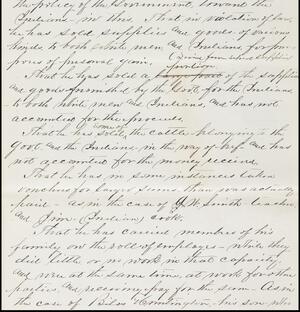 the policy of the Government toward the
Indians – in this. That in violation of law
he has sold supplies and goods of various
kinds to both white men and Indians for pur-
poses of personal gain.
portion
That he has sold a of the supplies
and goods furnished by the Govt for the Indians
to both white men and Indians, and has not
accounted for the proceeds.
some of
That he has sold, the cattle belonging to the
Govt and the Indians, in the way of beef and has
not accounted for the money received.
That he has in some instances taken
vouchers for larger sums than was actually
paid – as in the case of W. Smith teacher
and Jim (Indian) cook.
That he has carried members of his
family on the roll of employes – while they
did little or no work in that capacity
and were at the same time, at work for other
parties and receiving pay for the same – As in
the case of Bilas Huntington, his son who